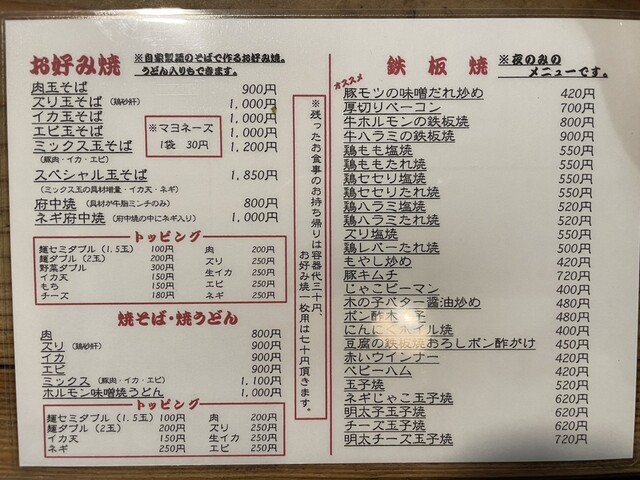 お好み焼
※自家製麺のそばで作るお好み焼。
うどん入りもできます。
肉玉そば 900円
ズリ玉そば (鶏砂肝) 1,000円
イカ玉そば 1,000円
エビ玉そば 1,000円
ミックス玉そば 1,200円
(豚肉・イカ・エビ)
※マヨネーズ
1袋 30円
スペシャル玉そば 1,850円
(ミックス玉の具材増量・イカ天・ネギ)
府中焼 (具材が牛脂ミンチのみ) 800円
ネギ府中焼 (府中焼の中にネギ入り) 1,000円
トッピング
麺セミダブル (1.5玉) 100円 肉 200円
麺ダブル (2玉) 200円 ズリ 250円
野菜ダブル 300円 イカ 250円
イカ天 150円 生イカ 250円
もち 150円 エビ 250円
チーズ 180円 ネギ 250円
焼そば・焼うどん
肉 800円
ズリ (鶏砂肝) 900円
イカ 900円
エビ 900円
ミックス (豚肉・イカ・エビ) 1,100円
ホルモン味噌焼うどん 1,000円
トッピング
麺セミダブル (1.5玉) 100円 肉 200円
麺ダブル (2玉) 200円 ズリ 250円
イカ天 150円 生イカ 250円
ネギ 250円 エビ 250円
※残ったお食事のお持ち帰りは容器代三十円、
お好み焼一枚用は七十円頂きます。
鉄板焼
※夜のみの
メニューです。
オススメ
豚モツの味噌だれ炒め 420円
厚切りベーコン 700円
牛ホルモンの鉄板焼 800円
牛ハラミの鉄板焼 900円
鶏もも塩焼 550円
鶏ももたれ焼 550円
鶏セセリ塩焼 550円
鶏セセリたれ焼 550円
鶏ハラミ塩焼 520円
鶏ハラミたれ焼 520円
ズリ塩焼 550円
鶏レバーたれ焼 500円
もやし炒め 420円
豚キムチ 720円
じゃこピーマン 400円
木の子バター醤油炒め 480円
ポン酢木 子 480円
にんに ホイル焼 400円
豆腐の鉄板焼おろしポン酢がけ 450円
赤いウインナー 420円
ベビーハム 420円
玉子焼 520円
ネギじゃこ玉子焼 620円
明太子玉子焼 620円
チーズ玉子焼 620円
明太チーズ玉子焼 720円